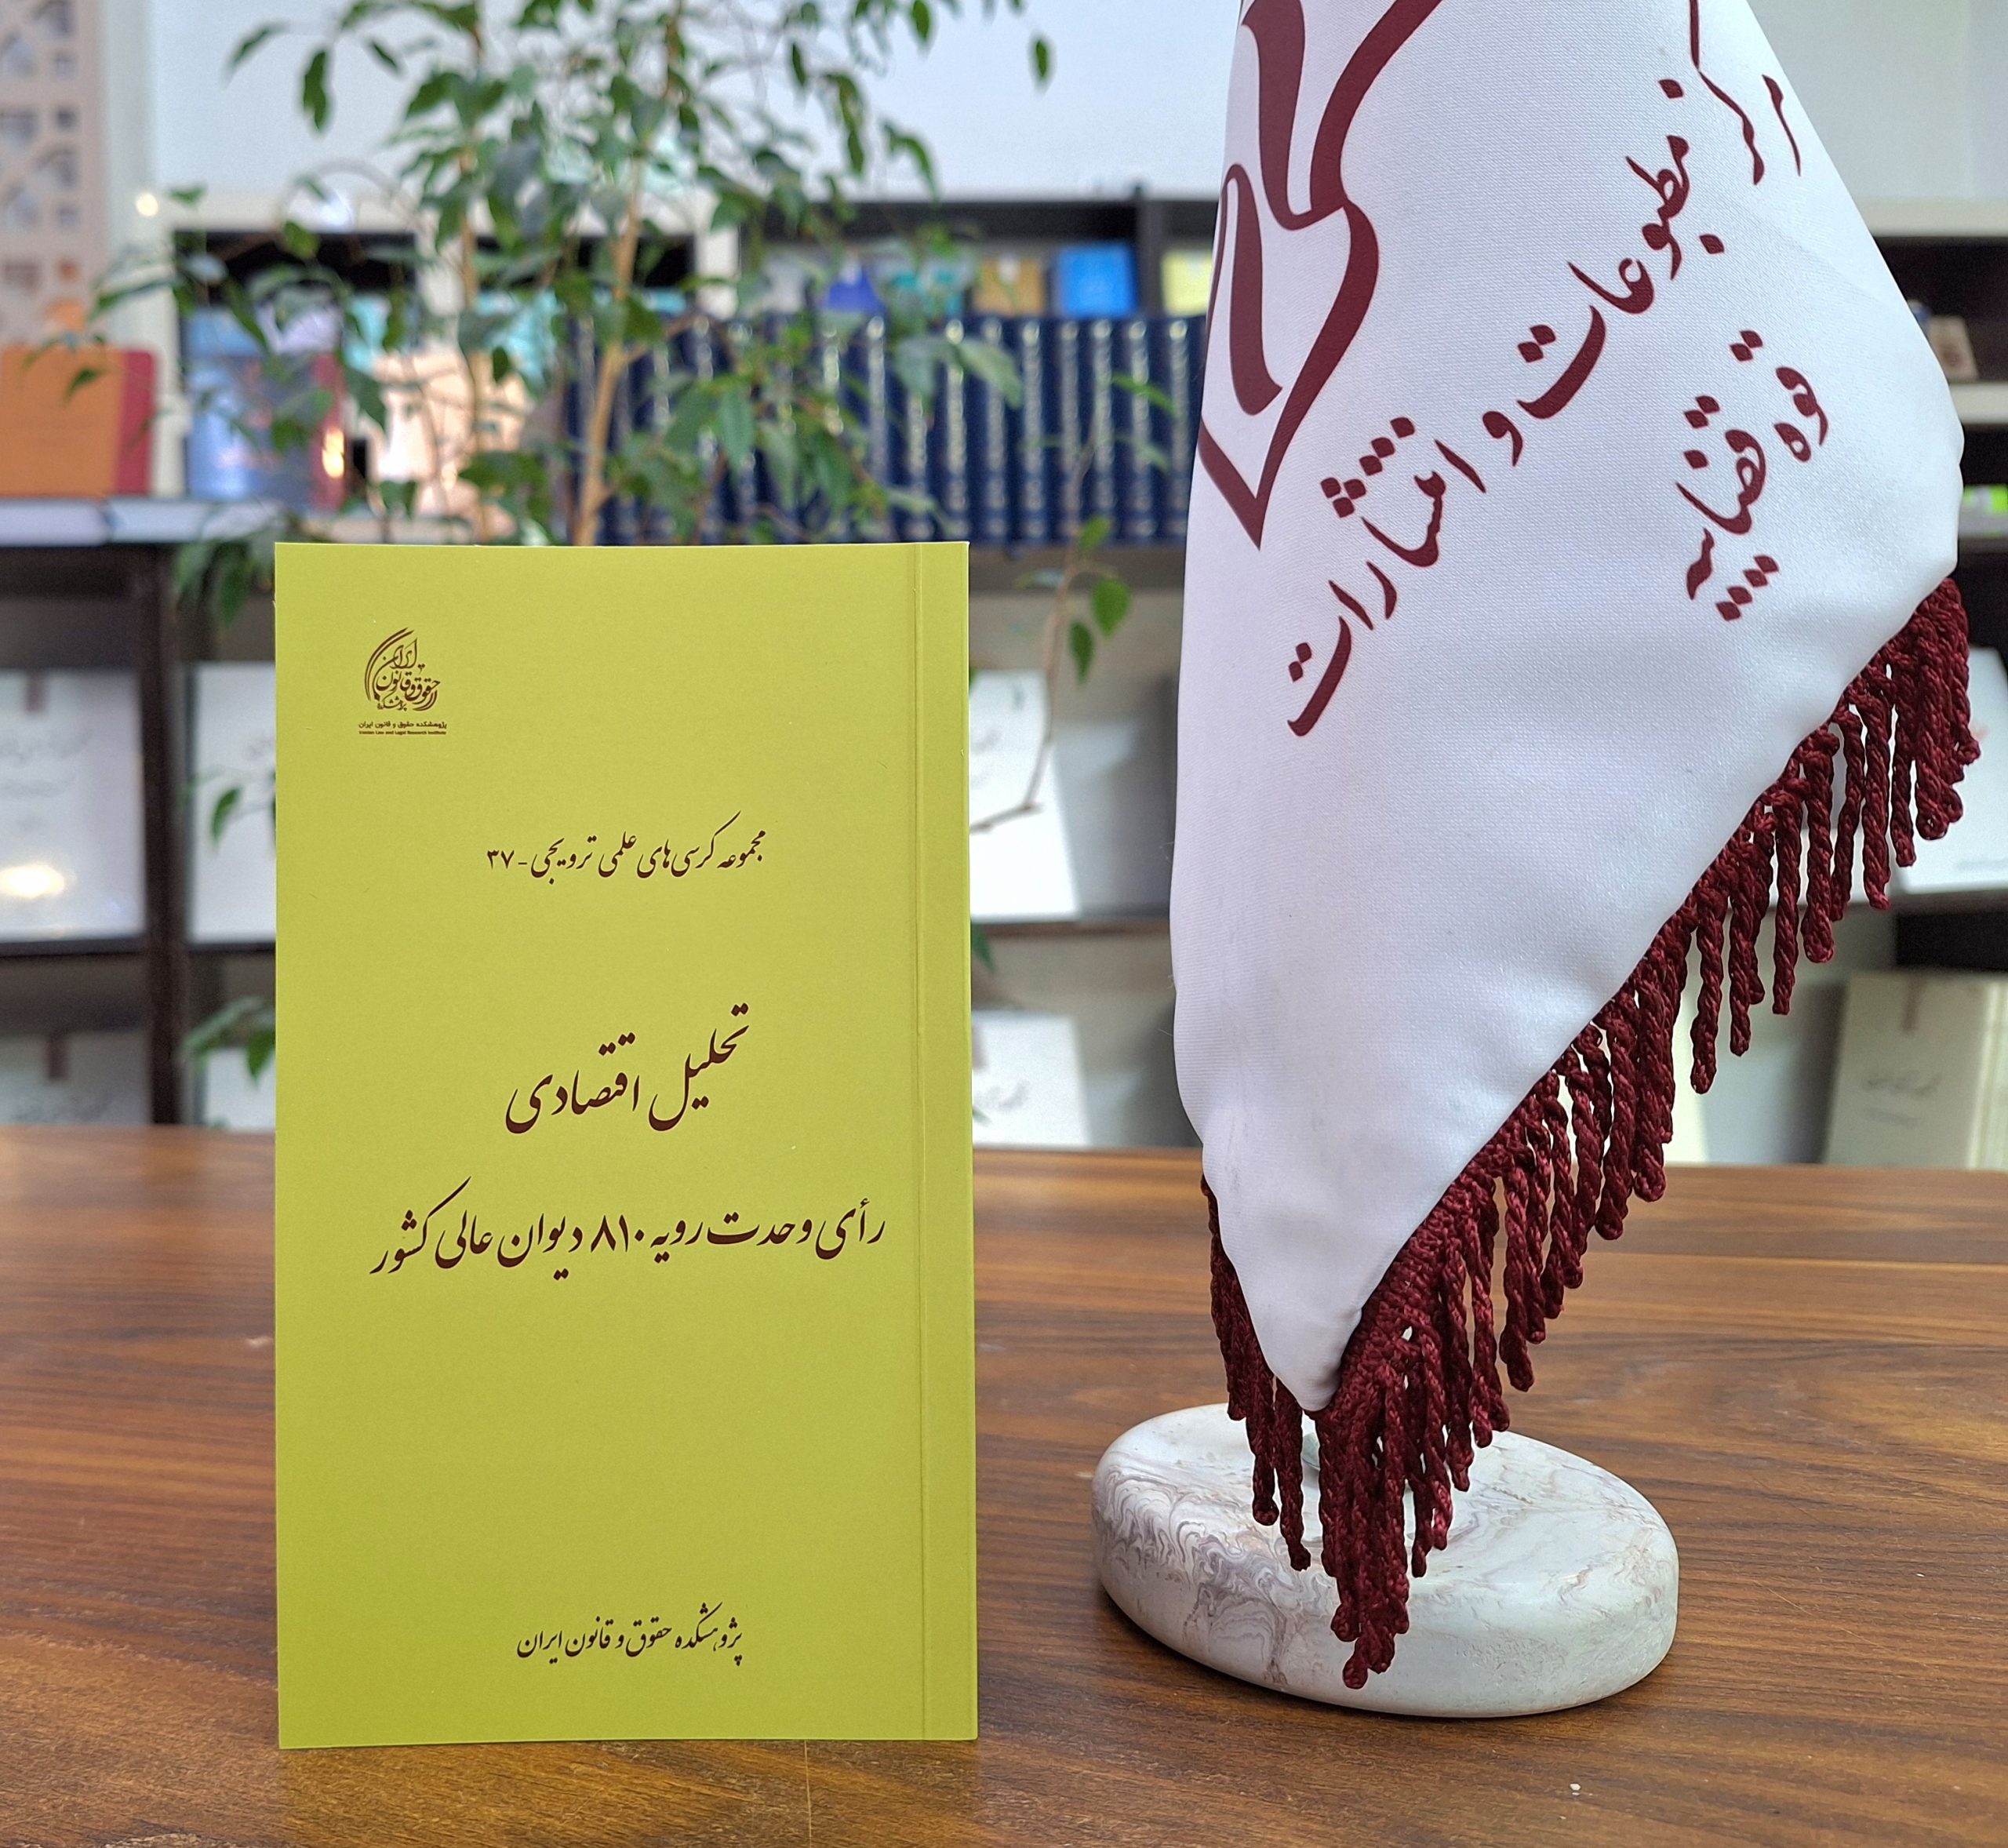 پژوهشکده حقوق و قانون ایران
Iranian Law and Legal Research Institute
مجموعه کرسی‌های علمی ترویجی - ۳۷
تحلیل اقتصادی
رأی وحدت رویه ۸۱۰ دیوان عالی کشور
پژوهشکده حقوق و قانون ایران
مرکز مطبوعات و انتشارات
قوه قضاییه